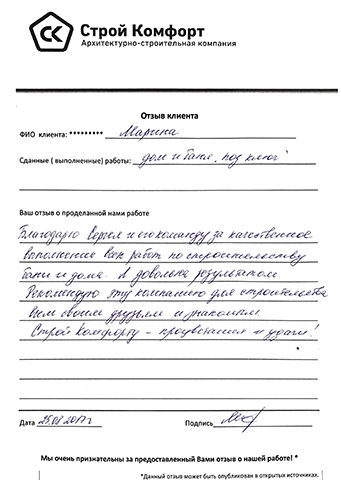 СК
Строй Комфорт
Архитектурно-строительная компания
Отзыв клиента
ФИО клиента: ********* Марина
Сданные ( выполненные) работы: дом и баня „под ключ"
Ваш отзыв о проделанной нами работе
Благодарю Сергея и его команду за качественное
выполнение всех работ по строительству
бани и дома. Я довольна результатом.
Рекомендую эту компанию для строительства
всем своим друзьям и знакомым.
Строй Комфорту - процветания и удачи!
Дата 25.08 2017 г Подпись
Мы очень признательны за предоставленный Вами отзыв о нашей работе! *
*Данный отзыв может быть опубликован в открытых источниках.